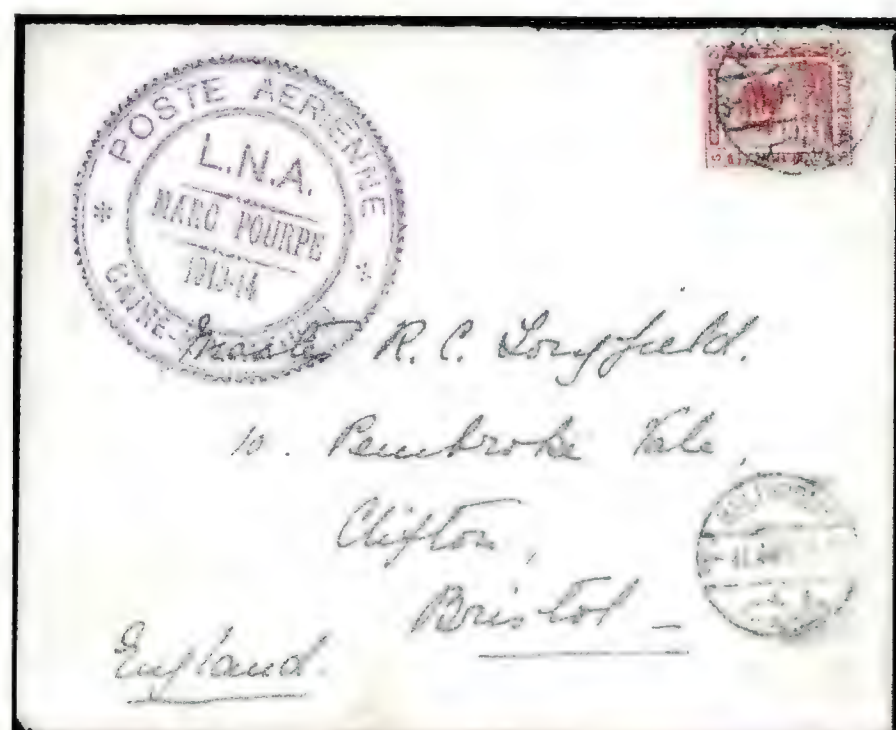 POSTE AERIENNE
L.N.A.
MARC POURPE
1913-14
Master R. C. Longfield.
10. Pembroke Vale,
Clifton,
Bristol
England.